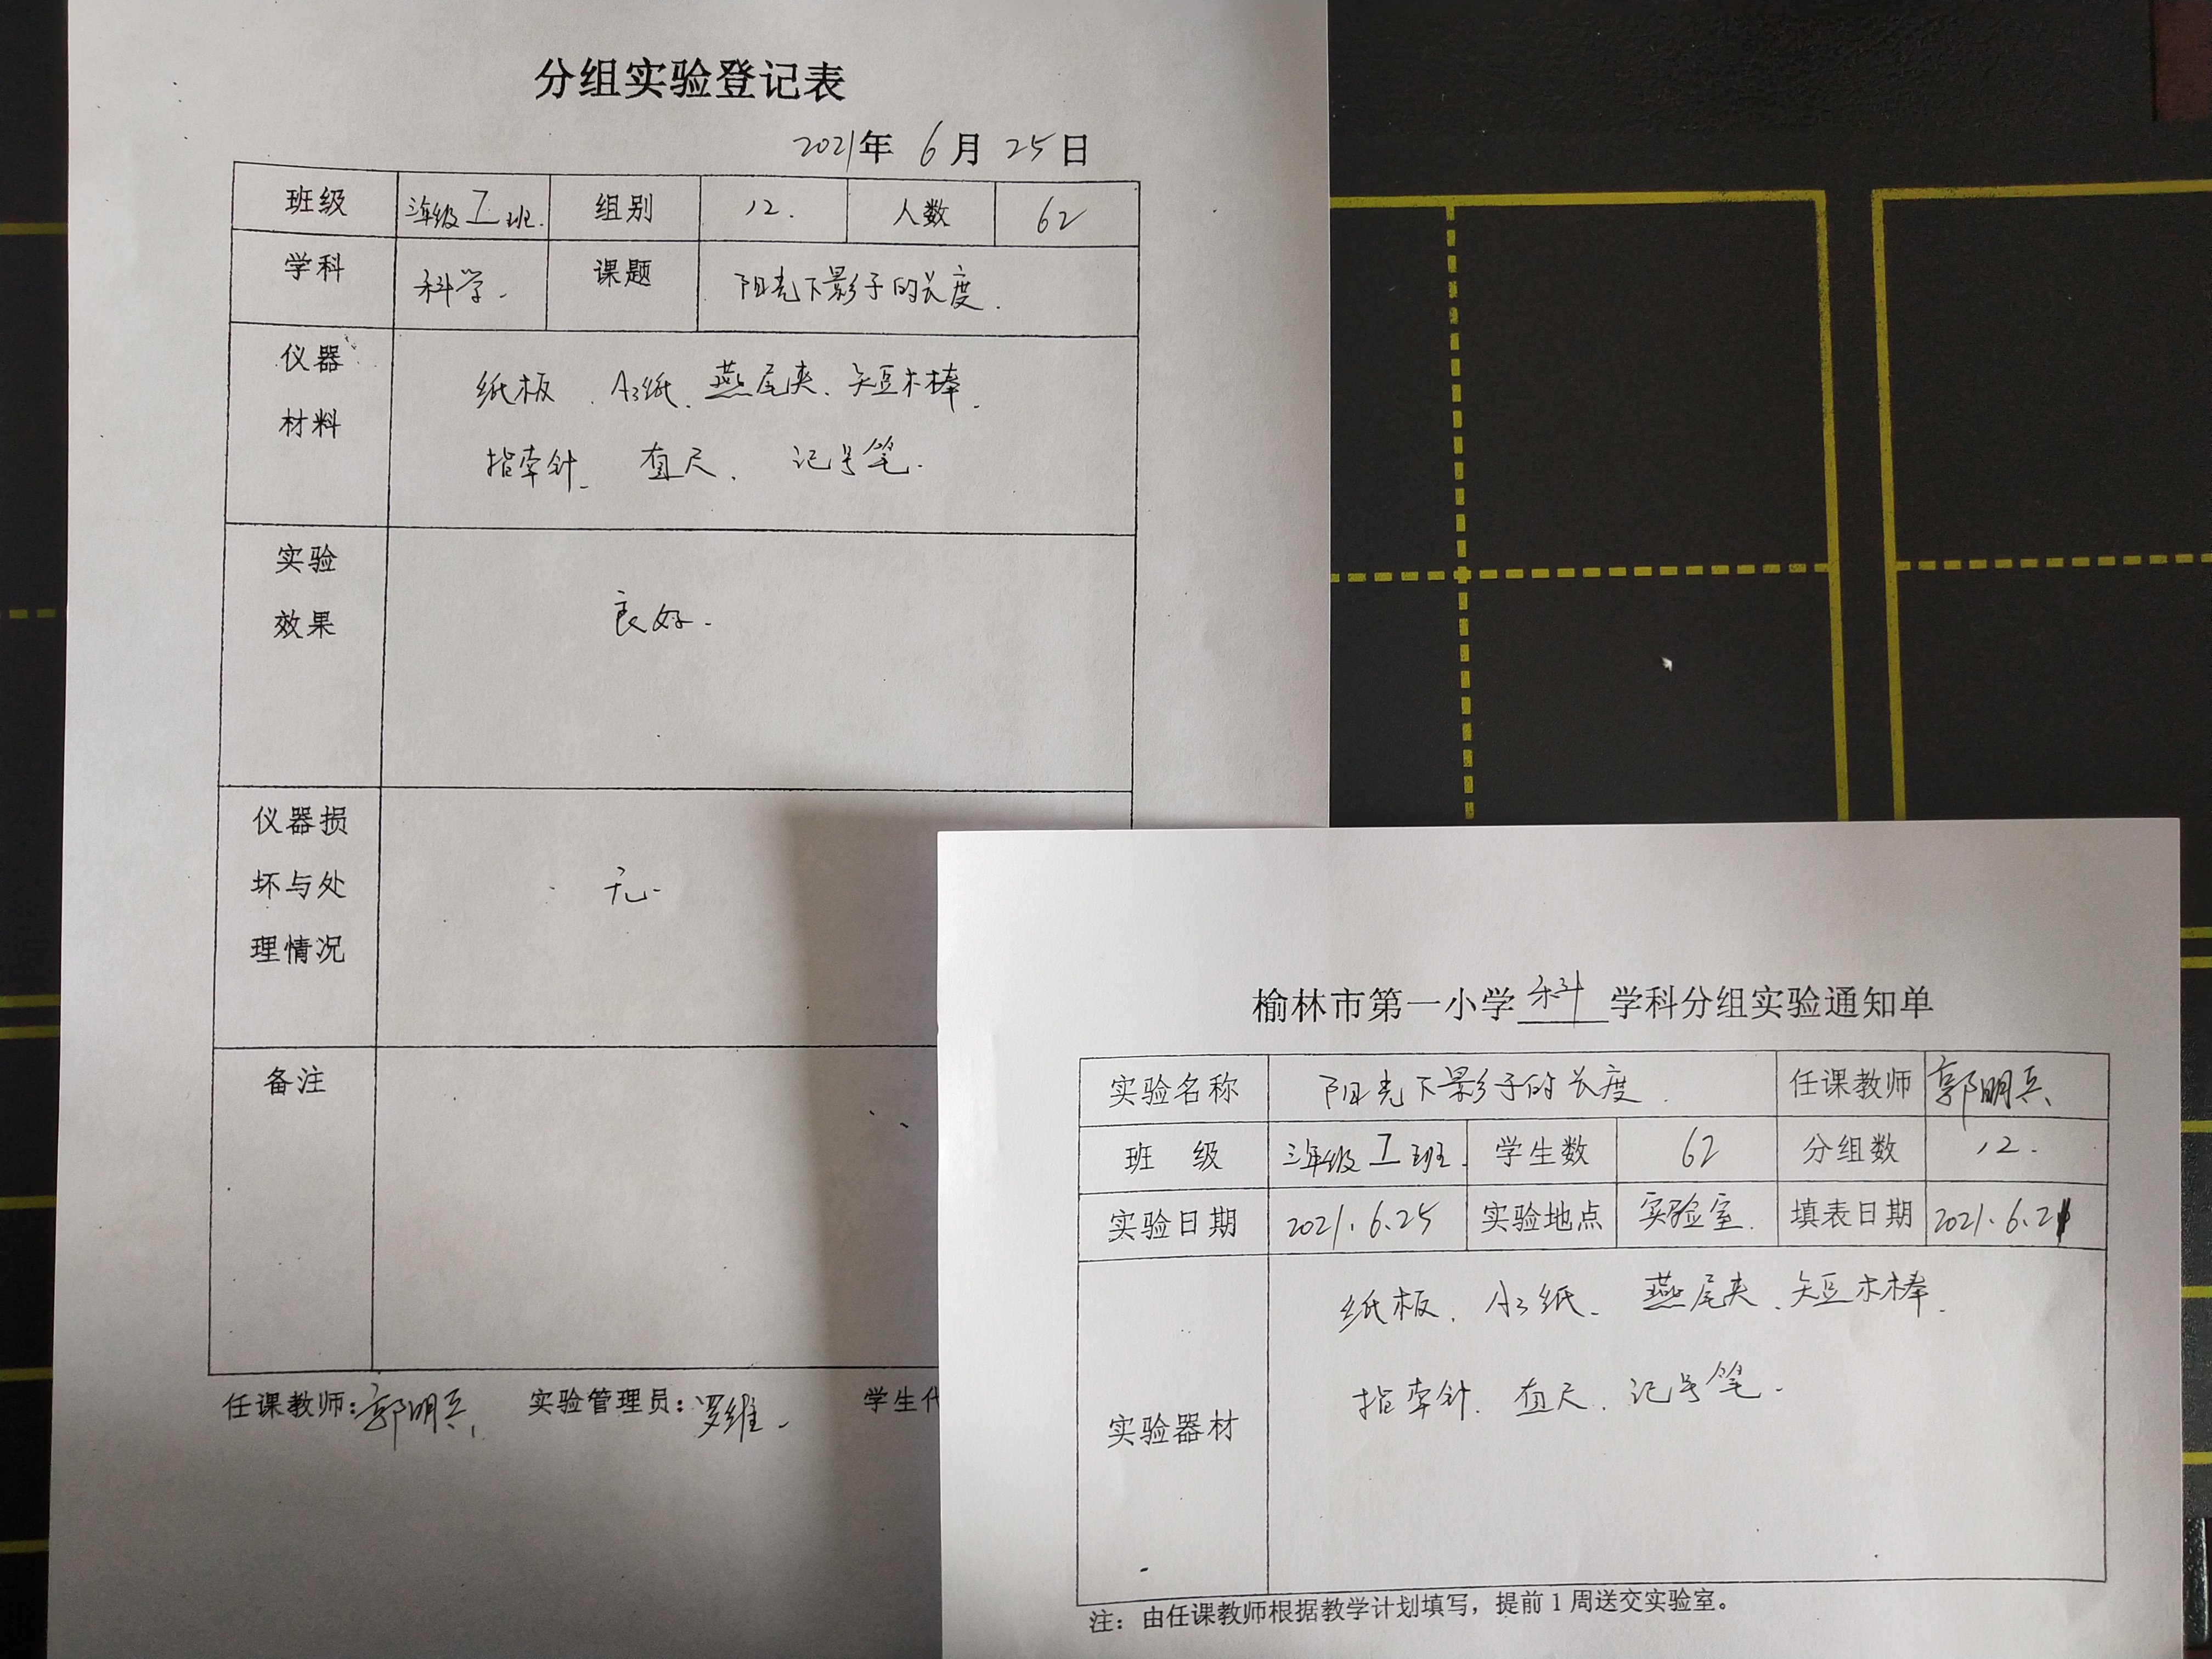 分组实验登记表
2021年 6月 25日
班级 三年级 7 班. 组别 12. 人数 62
学科 科学. 课题 阳光下影子的长度.
仪器 纸板、A3纸、燕尾夹、短木棒、
材料 指南针、直尺、记号笔.
实验
效果 良好.
仪器损
坏与处 无.
理情况
备注
任课教师:郭明兵 实验管理员:罗维. 学生
榆林市第一小学 科 学科分组实验通知单
实验名称 阳光下影子的长度. 任课教师 郭明兵
班 级 三年级 7 班. 学生数 62 分组数 12.
实验日期 2021.6.25 实验地点 实验室. 填表日期 2021.6.21
纸板、A3纸、燕尾夹、短木棒、
指南针、直尺、记号笔.
实验器材
注:由任课教师根据教学计划填写,提前1周送交实验室。